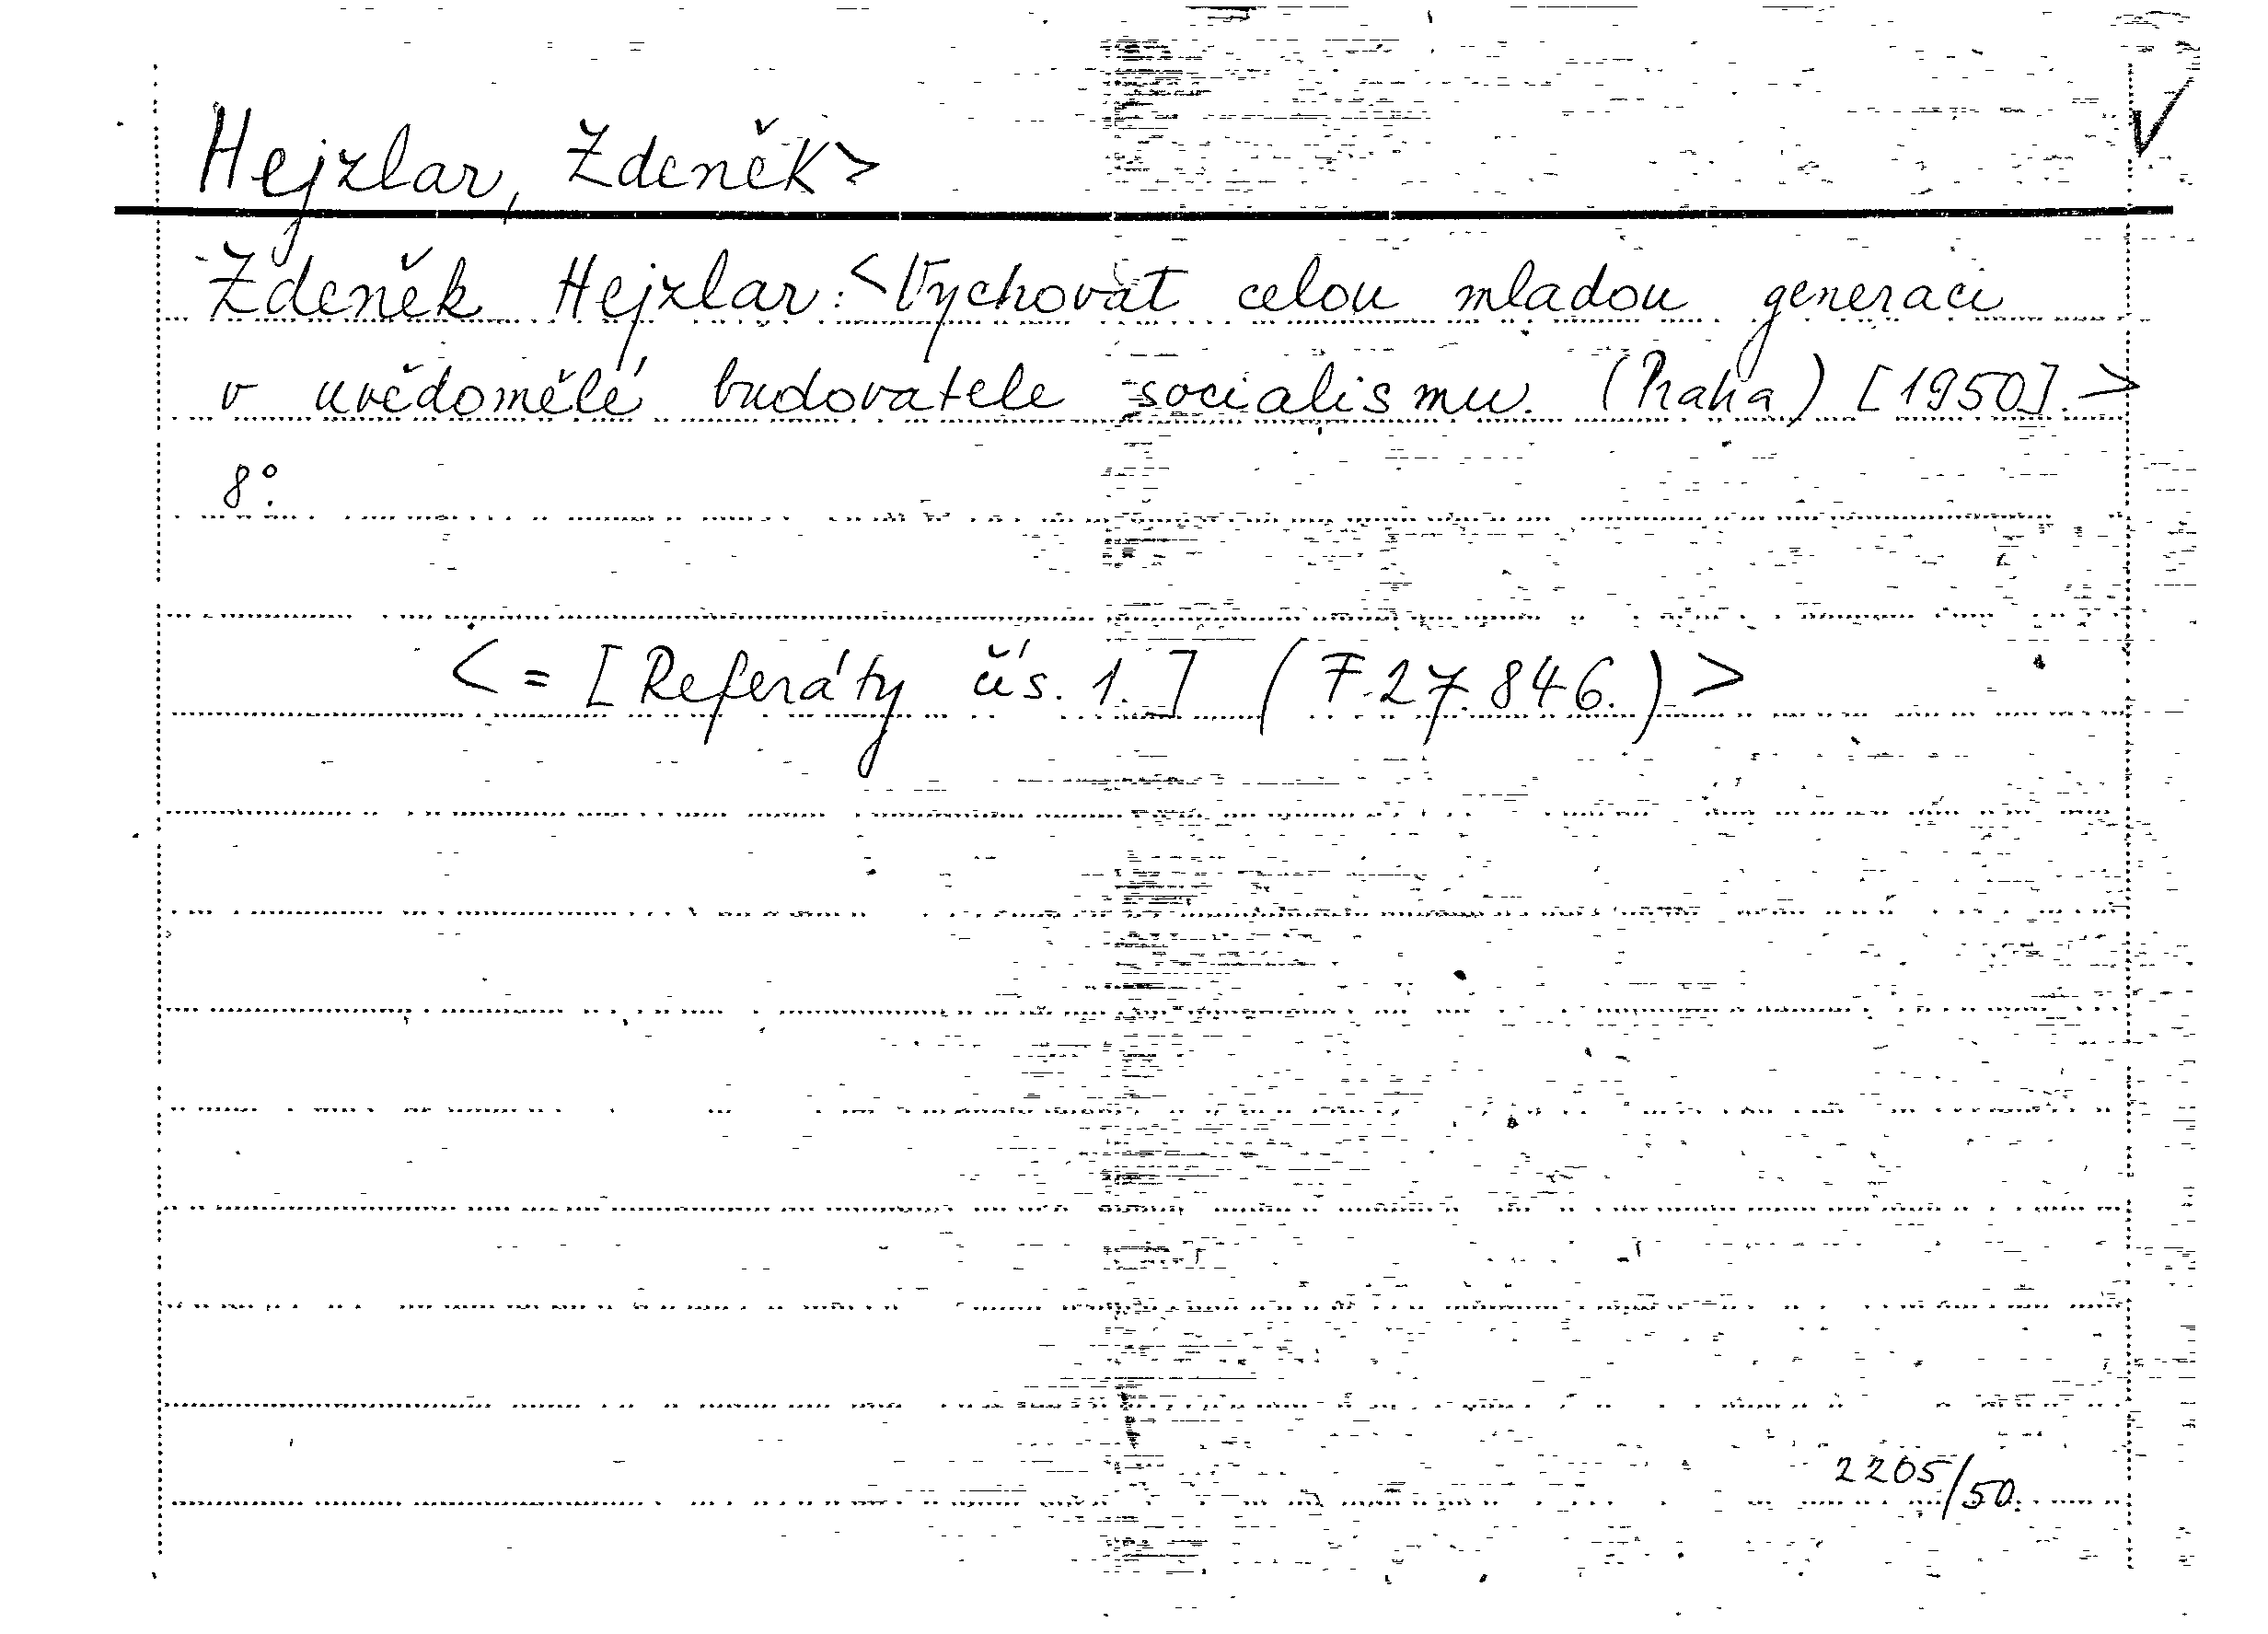 Hejzlar, Zdeněk>
Zdeněk Hejzlar: <Vychovat celou mladou generaci
v uvědomělé budovatele socialismu. (Praha) [1950]. >
8°.
< = [Referáty čís. 1.] (F.27.846.) >
2205/50.